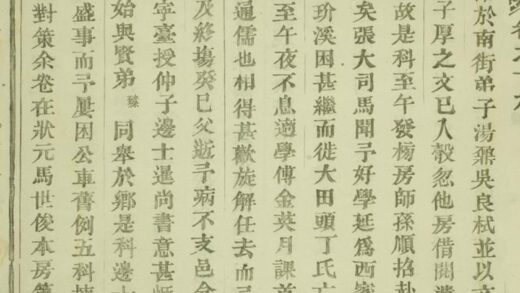 於南街弟子湯鼐吳良栻並以文
子厚之文已入彀忽他房借閱遺
故是科至午發榜房師孫順掐卦
矣張大司馬聞予好學延爲西
玠溪困甚繼而徙大田頭丁氏
至午夜不息適學傅金英月課
通儒也相得甚歡旋解任去而
及終塲癸巳父逝予病不支邑
寜臺授仲子邊士暹尚書意甚
始與賢弟 同舉於鄉是科邊士
盛事而予屢困公車舊例五科
對策余卷在狀元馬世俊本房